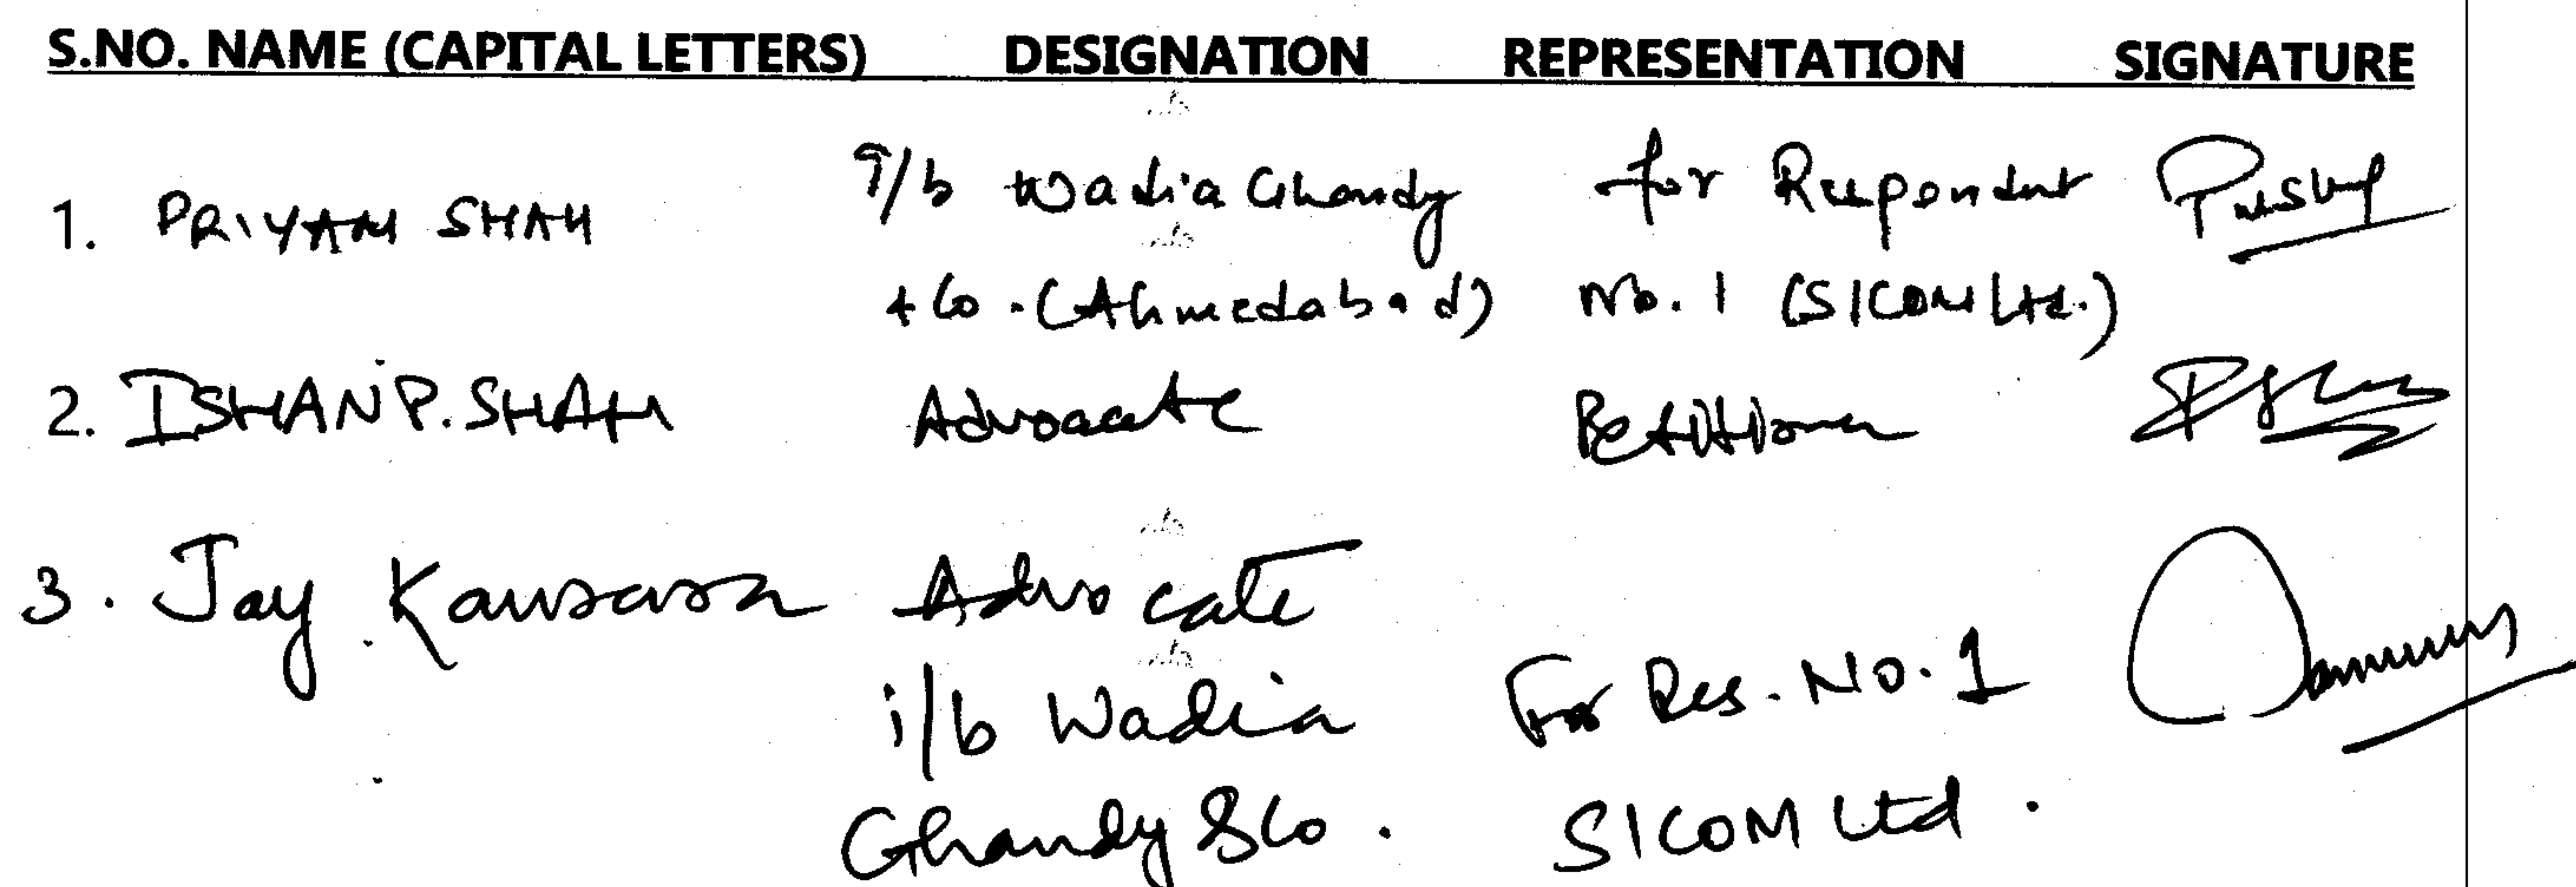 S.NO. NAME (CAPITAL LETTERS) DESIGNATION REPRESENTATION SIGNATURE
1. PRIYAM SHAH i/b Wadia Ghandy for Respondent
+ Co. (Ahmedabad) No. 1 (SICOM Ltd.)
2. ISHAN P. SHAH Advocate Petitioner
3. Jay Kansara Advocate
i/b Wadia For Res. No. 1
Ghandy & Co. SICOM Ltd.